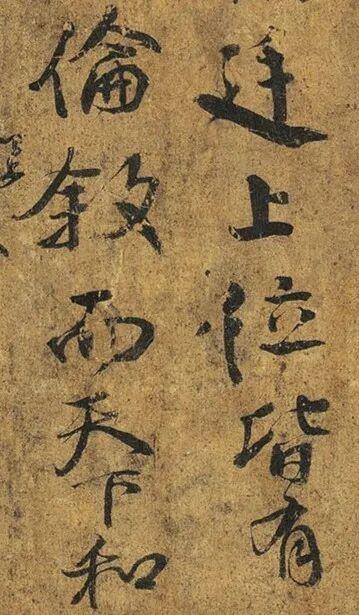 廷上位皆有
倫敘而天下和